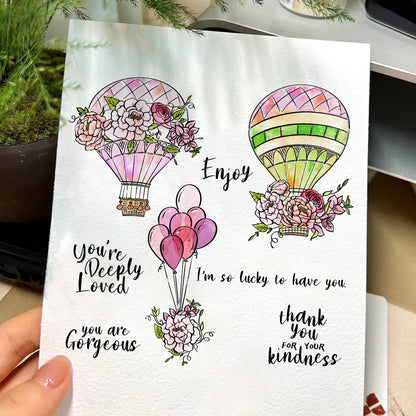 Enjoy
You're
Deeply
Loved
I'm so lucky to have you.
you are
Gorgeous
thank
you
FOR YOUR
kindness